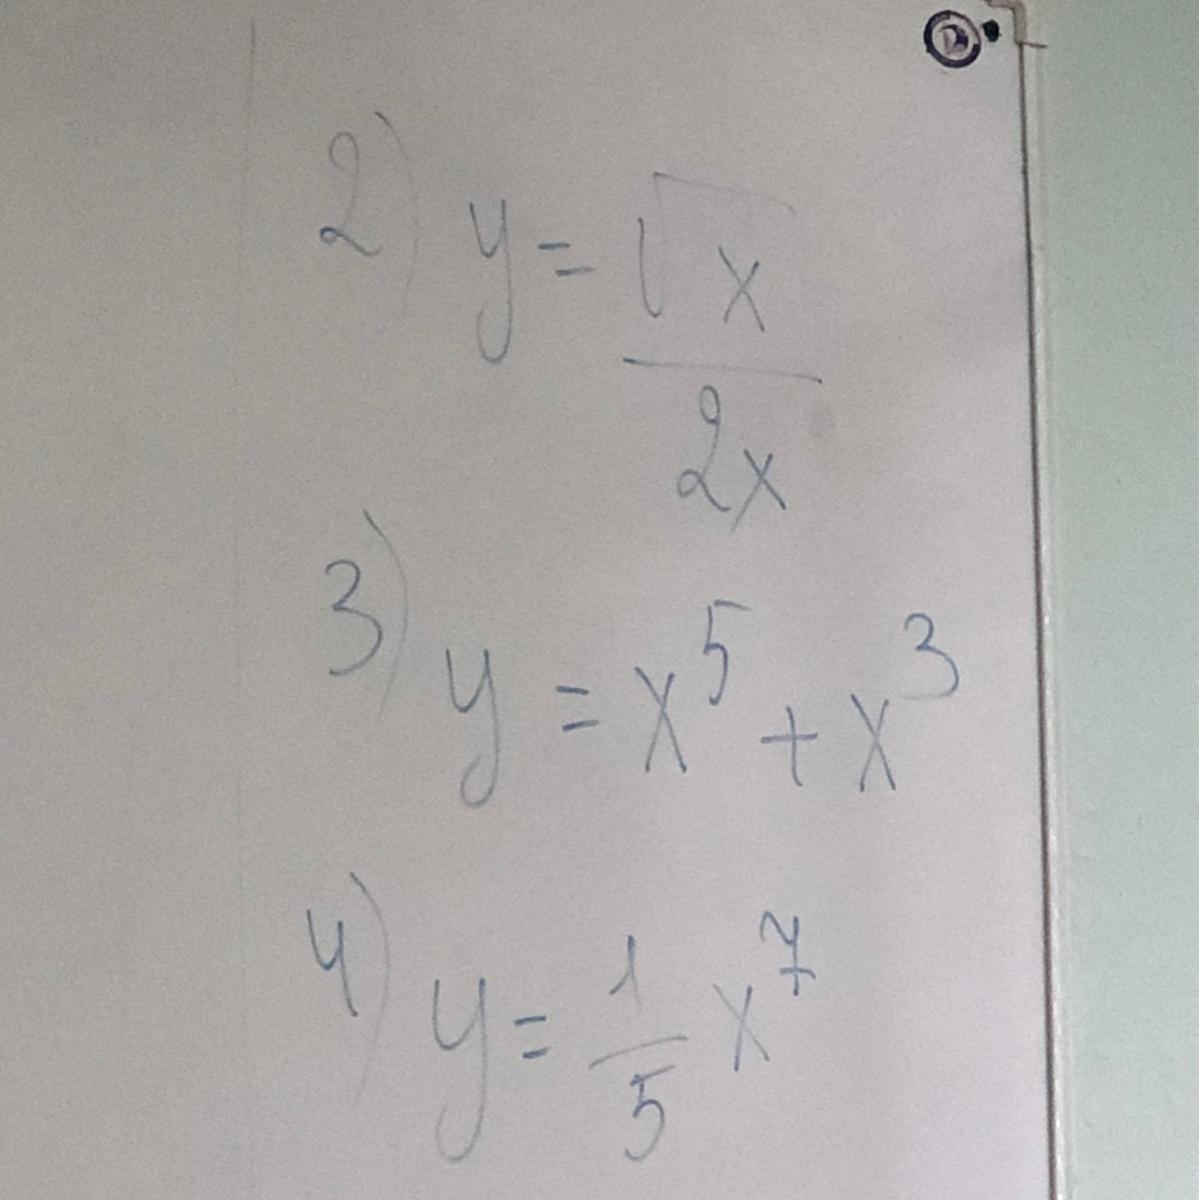 2) y = √x / 2x
3) y = x⁵ + x³
4) y = 1/5 x⁷